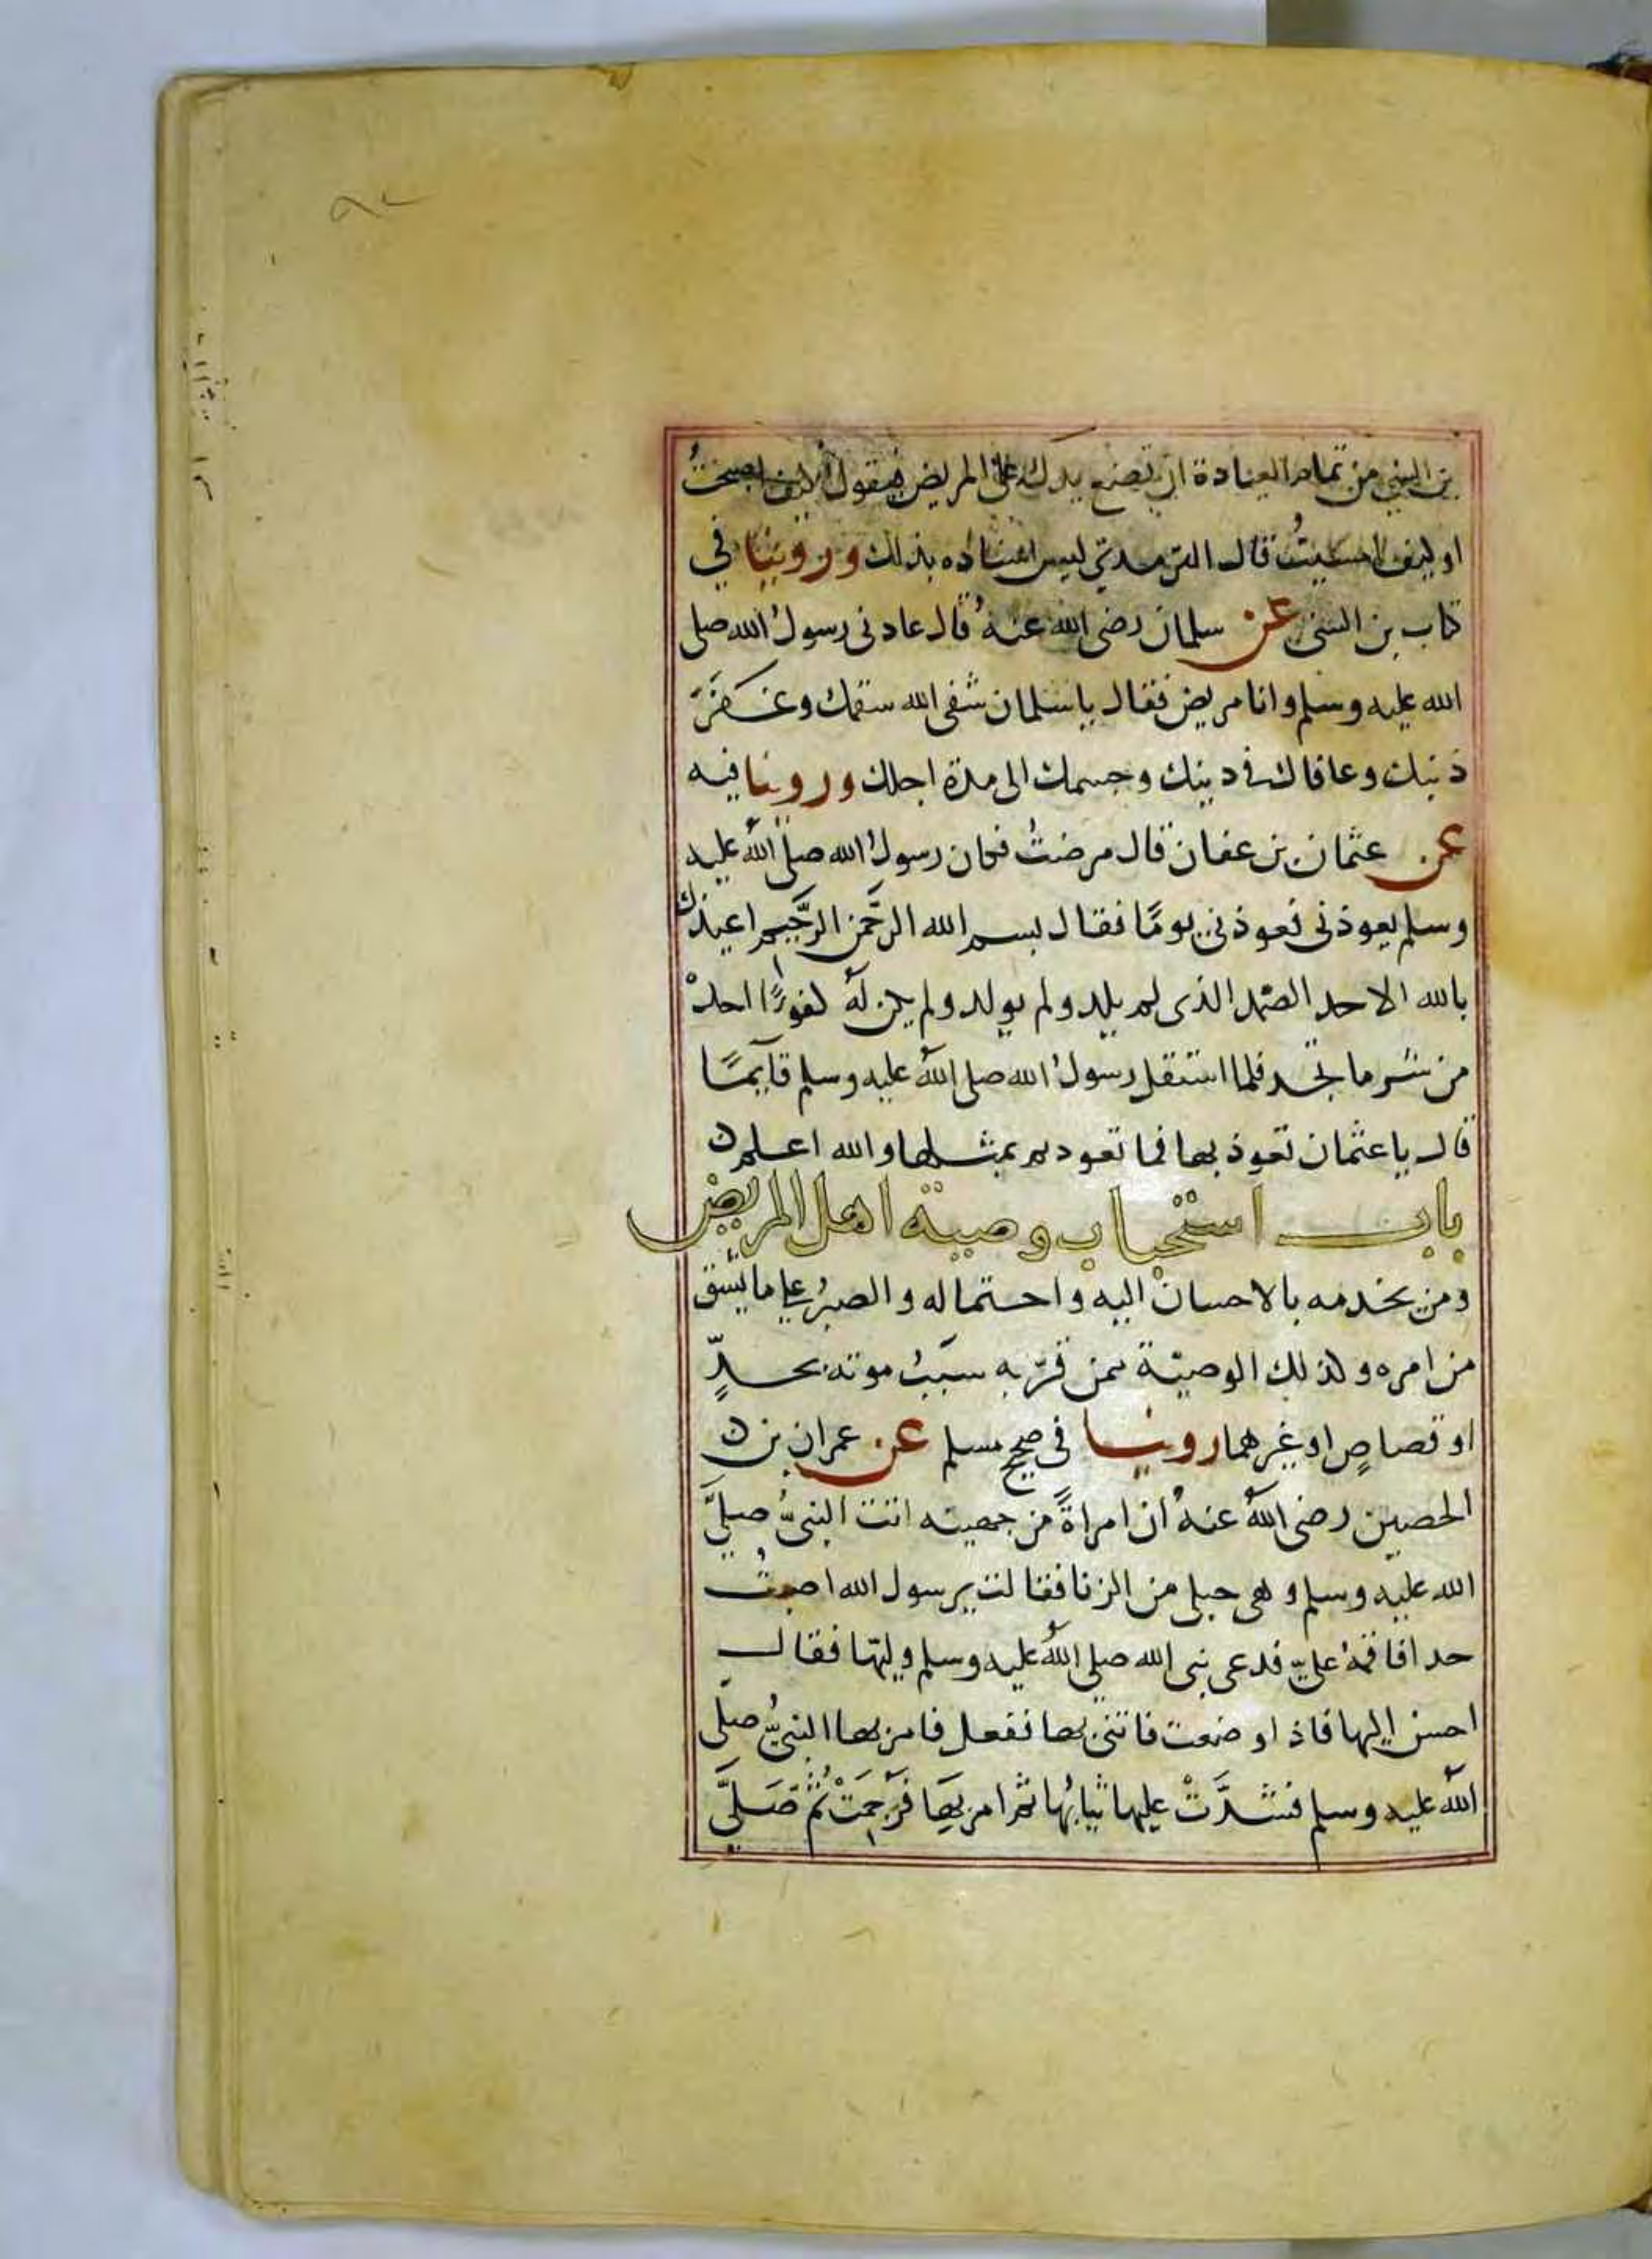 بن السني من تمام العيادة ان تضع يدك على المريض فيقول كيف اصبحتُ
او كيف امسيتُ قال الترمذي ليس اسناده بذلك وروينا في
كتاب بن السني عن سلمان رضى الله عنهُ قال عادنى رسولُ الله صلى
الله عليه وسلم وانا مريض فقال يا سلمان شفى الله سقمك وغَفَرَ
ذنبك وعافاك فى دينك وجسمك الى مدة اجلك وروينا فيه
عن عثمان بن عفان قال مرضتُ فكان رسولُ الله صلى الله عليه
وسلم يعوذنى فعوذنى يومًا فقال بسم الله الرحمن الرحيم اعيذك
بالله الاحد الصمد الذى لم يلد ولم يولد ولم يكن له كفوًا احدْ
من شر ما تجد فلما استقل رسولُ الله صلى الله عليه وسلم قآيمًا
قال يا عثمان تعوذ بها فما تعوذتم بمثلها والله اعلم
باب استحباب وصية اهل المريض
ومن يخدمه بالاحسان اليه واحتماله والصبرُ على ما يشق
من امره وكذلك الوصيّة بمن قرّبه سَبَبُ موته بحدٍّ
او قصاصٍ او غيرهما روينا فى صحيح مسلم عن عمران بن
الحصين رضى اللهُ عنهُ ان امراةً من جهينه اتت النبىُّ صلىَّ
الله عليه وسلم وهى حبلى من الزنا فقالت يرسول الله اصبتُ
حدا فاقمهُ علىّ فدعى نبى الله صلى اللهُ عليه وسلم وليّها فقال
احسن اليها فاذا وضعت فاتنى بها ففعل فامر بها النبىُّ صلّى
اللهُ عليه وسلم فشدَّتْ عليها ثيابُها ثم امر بِهَا فَرُجِمَتْ ثُمّ صَلَّى